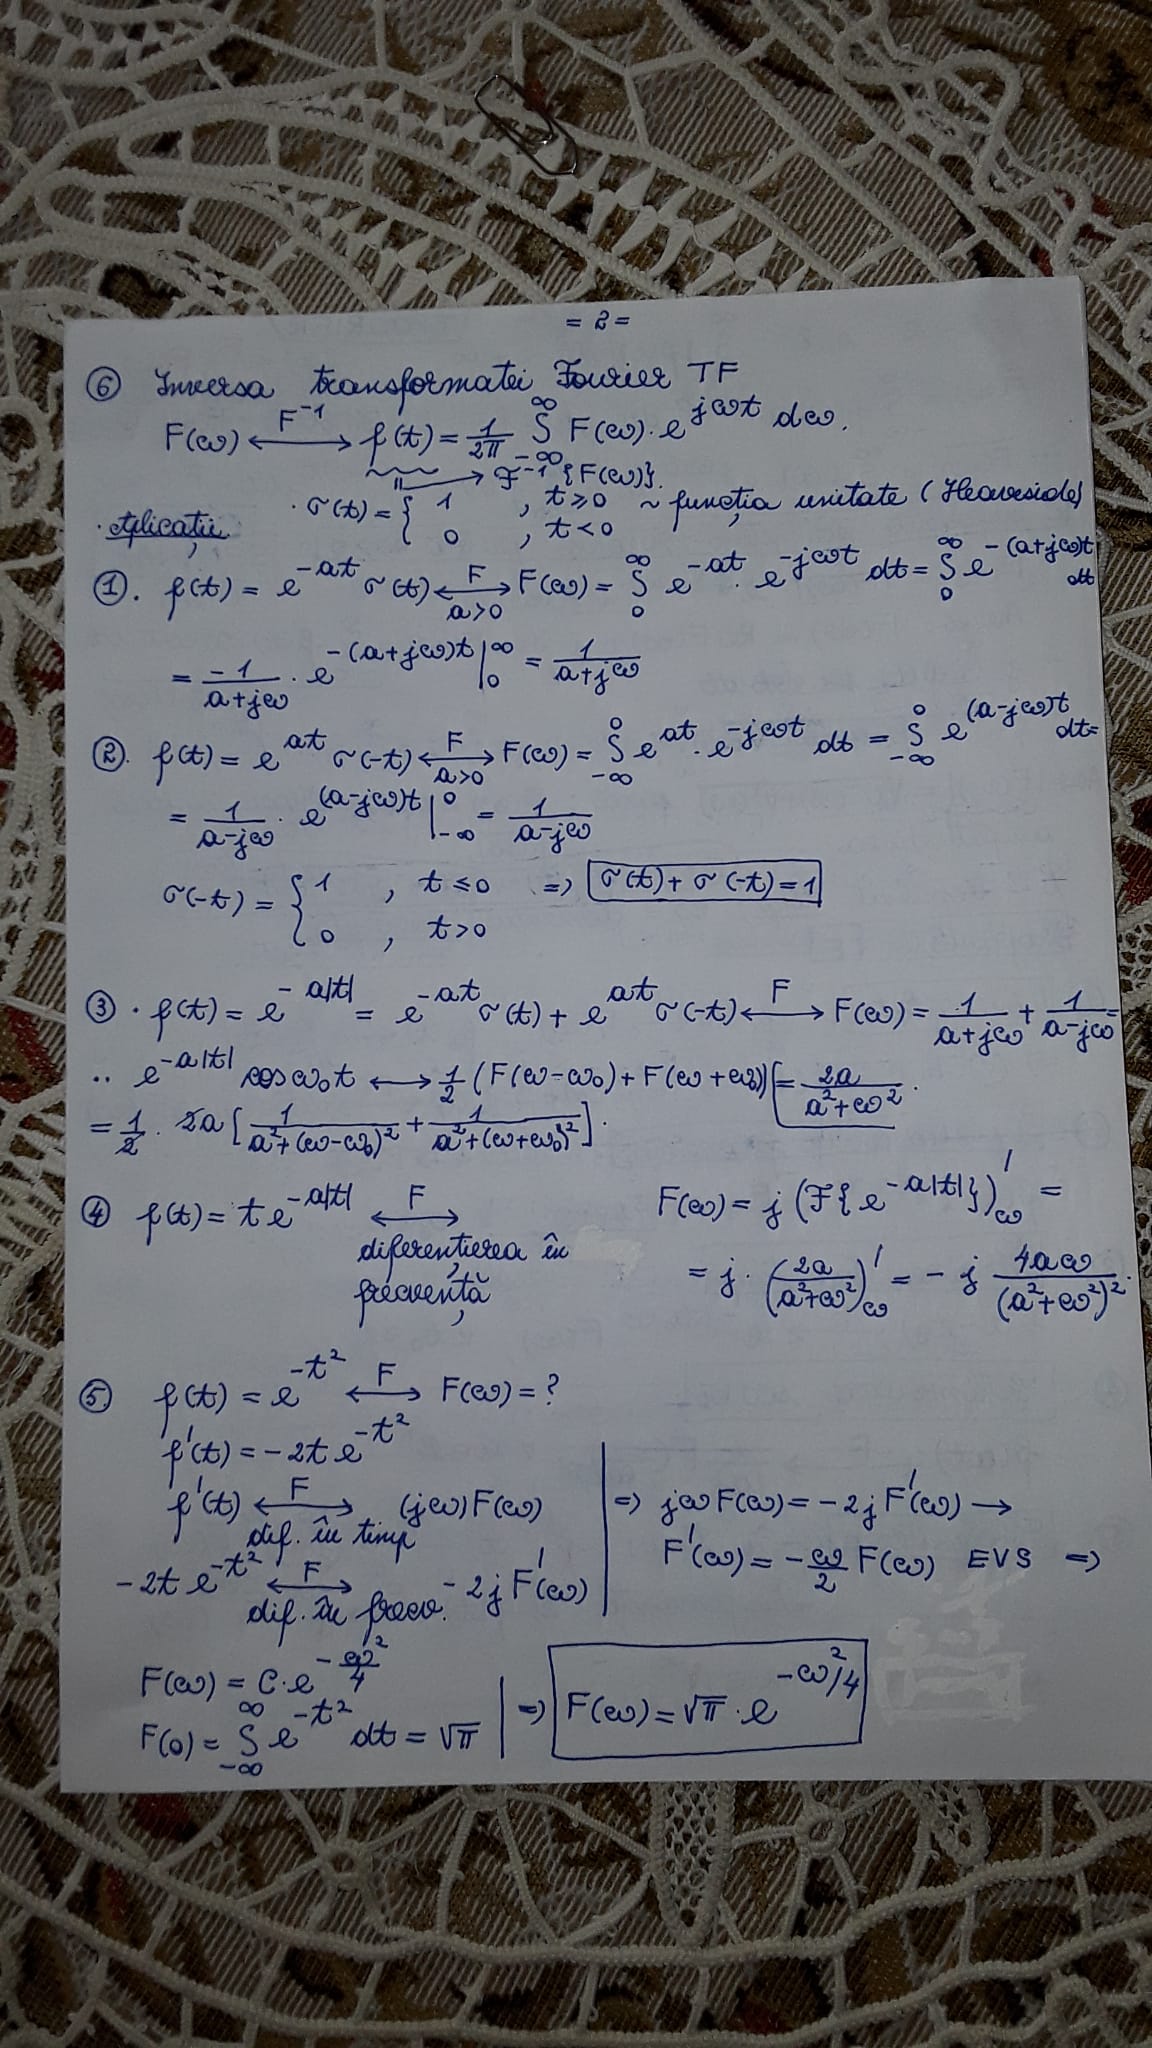 = 2 =
⑥ Inversa transformatei Fourier TF
F(ω) ⟷^{F^{-1}} f(t) = 1/2π ∫_{-∞}^{∞} F(ω)·e^{jωt} dω.
𝓕^{-1}{F(ω)}.
Aplicații. · σ(t) = { 1 , t ≥ 0 ; 0 , t < 0 ~ funcția unitate (Heaviside)
①. f(t) = e^{-at} σ(t) ⟷^{F}_{a>0} F(ω) = ∫_0^∞ e^{-at}·e^{-jωt} dt = ∫_0^∞ e^{-(a+jω)t} dt
= -1/(a+jω) · e^{-(a+jω)t} |_0^∞ = 1/(a+jω)
②. f(t) = e^{at} σ(-t) ⟷^{F}_{a>0} F(ω) = ∫_{-∞}^0 e^{at}·e^{-jωt} dt = ∫_{-∞}^0 e^{(a-jω)t} dt =
= 1/(a-jω) · e^{(a-jω)t} |_{-∞}^0 = 1/(a-jω)
σ(-t) = { 1 , t ≤ 0 ; 0 , t > 0 => σ(t) + σ(-t) = 1
③ · f(t) = e^{-a|t|} = e^{-at} σ(t) + e^{at} σ(-t) ⟷^{F} F(ω) = 1/(a+jω) + 1/(a-jω) =
·· e^{-a|t|} cos ω₀t ⟷ 1/2 (F(ω-ω₀) + F(ω+ω₀)) = 2a/(a²+ω²).
= 1/2 · 2a [1/(a²+(ω-ω₀)²) + 1/(a²+(ω+ω₀)²)].
④ f(t) = t e^{-a|t|} ⟷^{F} F(ω) = j (𝓕{e^{-a|t|}})'_ω =
diferențierea în frecvență = j · (2a/(a²+ω²))'_ω = - j 4aω/(a²+ω²)².
⑤ f(t) = e^{-t²} ⟷^{F} F(ω) = ?
f'(t) = -2t e^{-t²}
f'(t) ⟷^{F} (jω) F(ω) => jω F(ω) = -2j F'(ω) →
dif. în timp
F'(ω) = -ω/2 F(ω) EVS =>
-2t e^{-t²} ⟷^{F} -2j F'(ω)
dif. în frecv.
F(ω) = C·e^{-ω²/4}
F(0) = ∫_{-∞}^{∞} e^{-t²} dt = √π => F(ω) = √π · e^{-ω²/4}